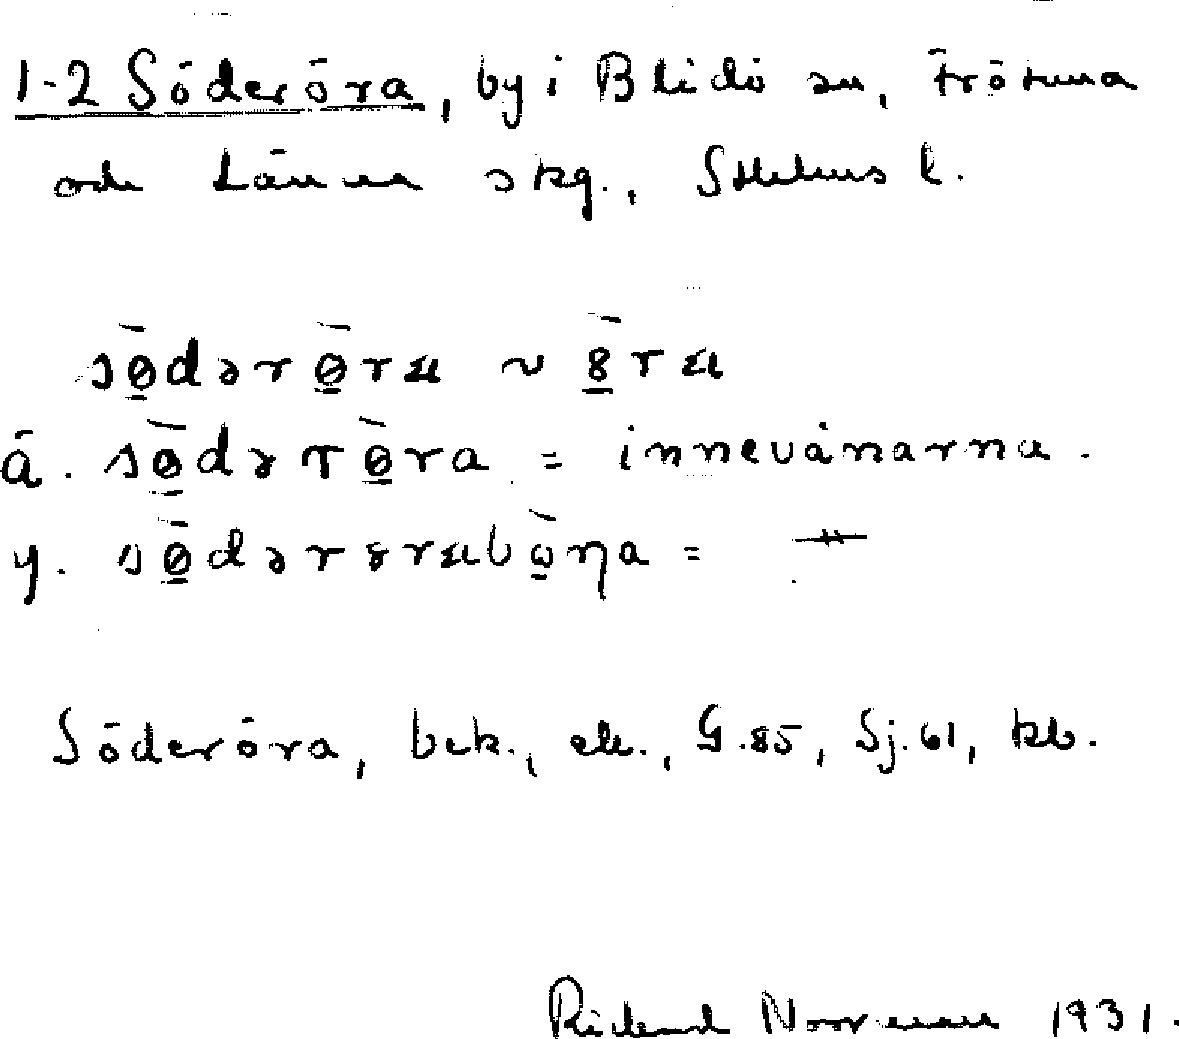 1-2 Söderöra, by i Blidö sn, Frötuna
och Länna skg., Sthlms l.
sø̱̄dərø̱̄rа ~ 8̱̄rа
ä. sø̱̄dərø̱̄ra = innevånarna.
y. sø̱̄dər8rаbω̱̄ŋa = -"-
Söderöra, bek., ek., G.85, Sj.61, kb.
Rickard Norrman 1931.